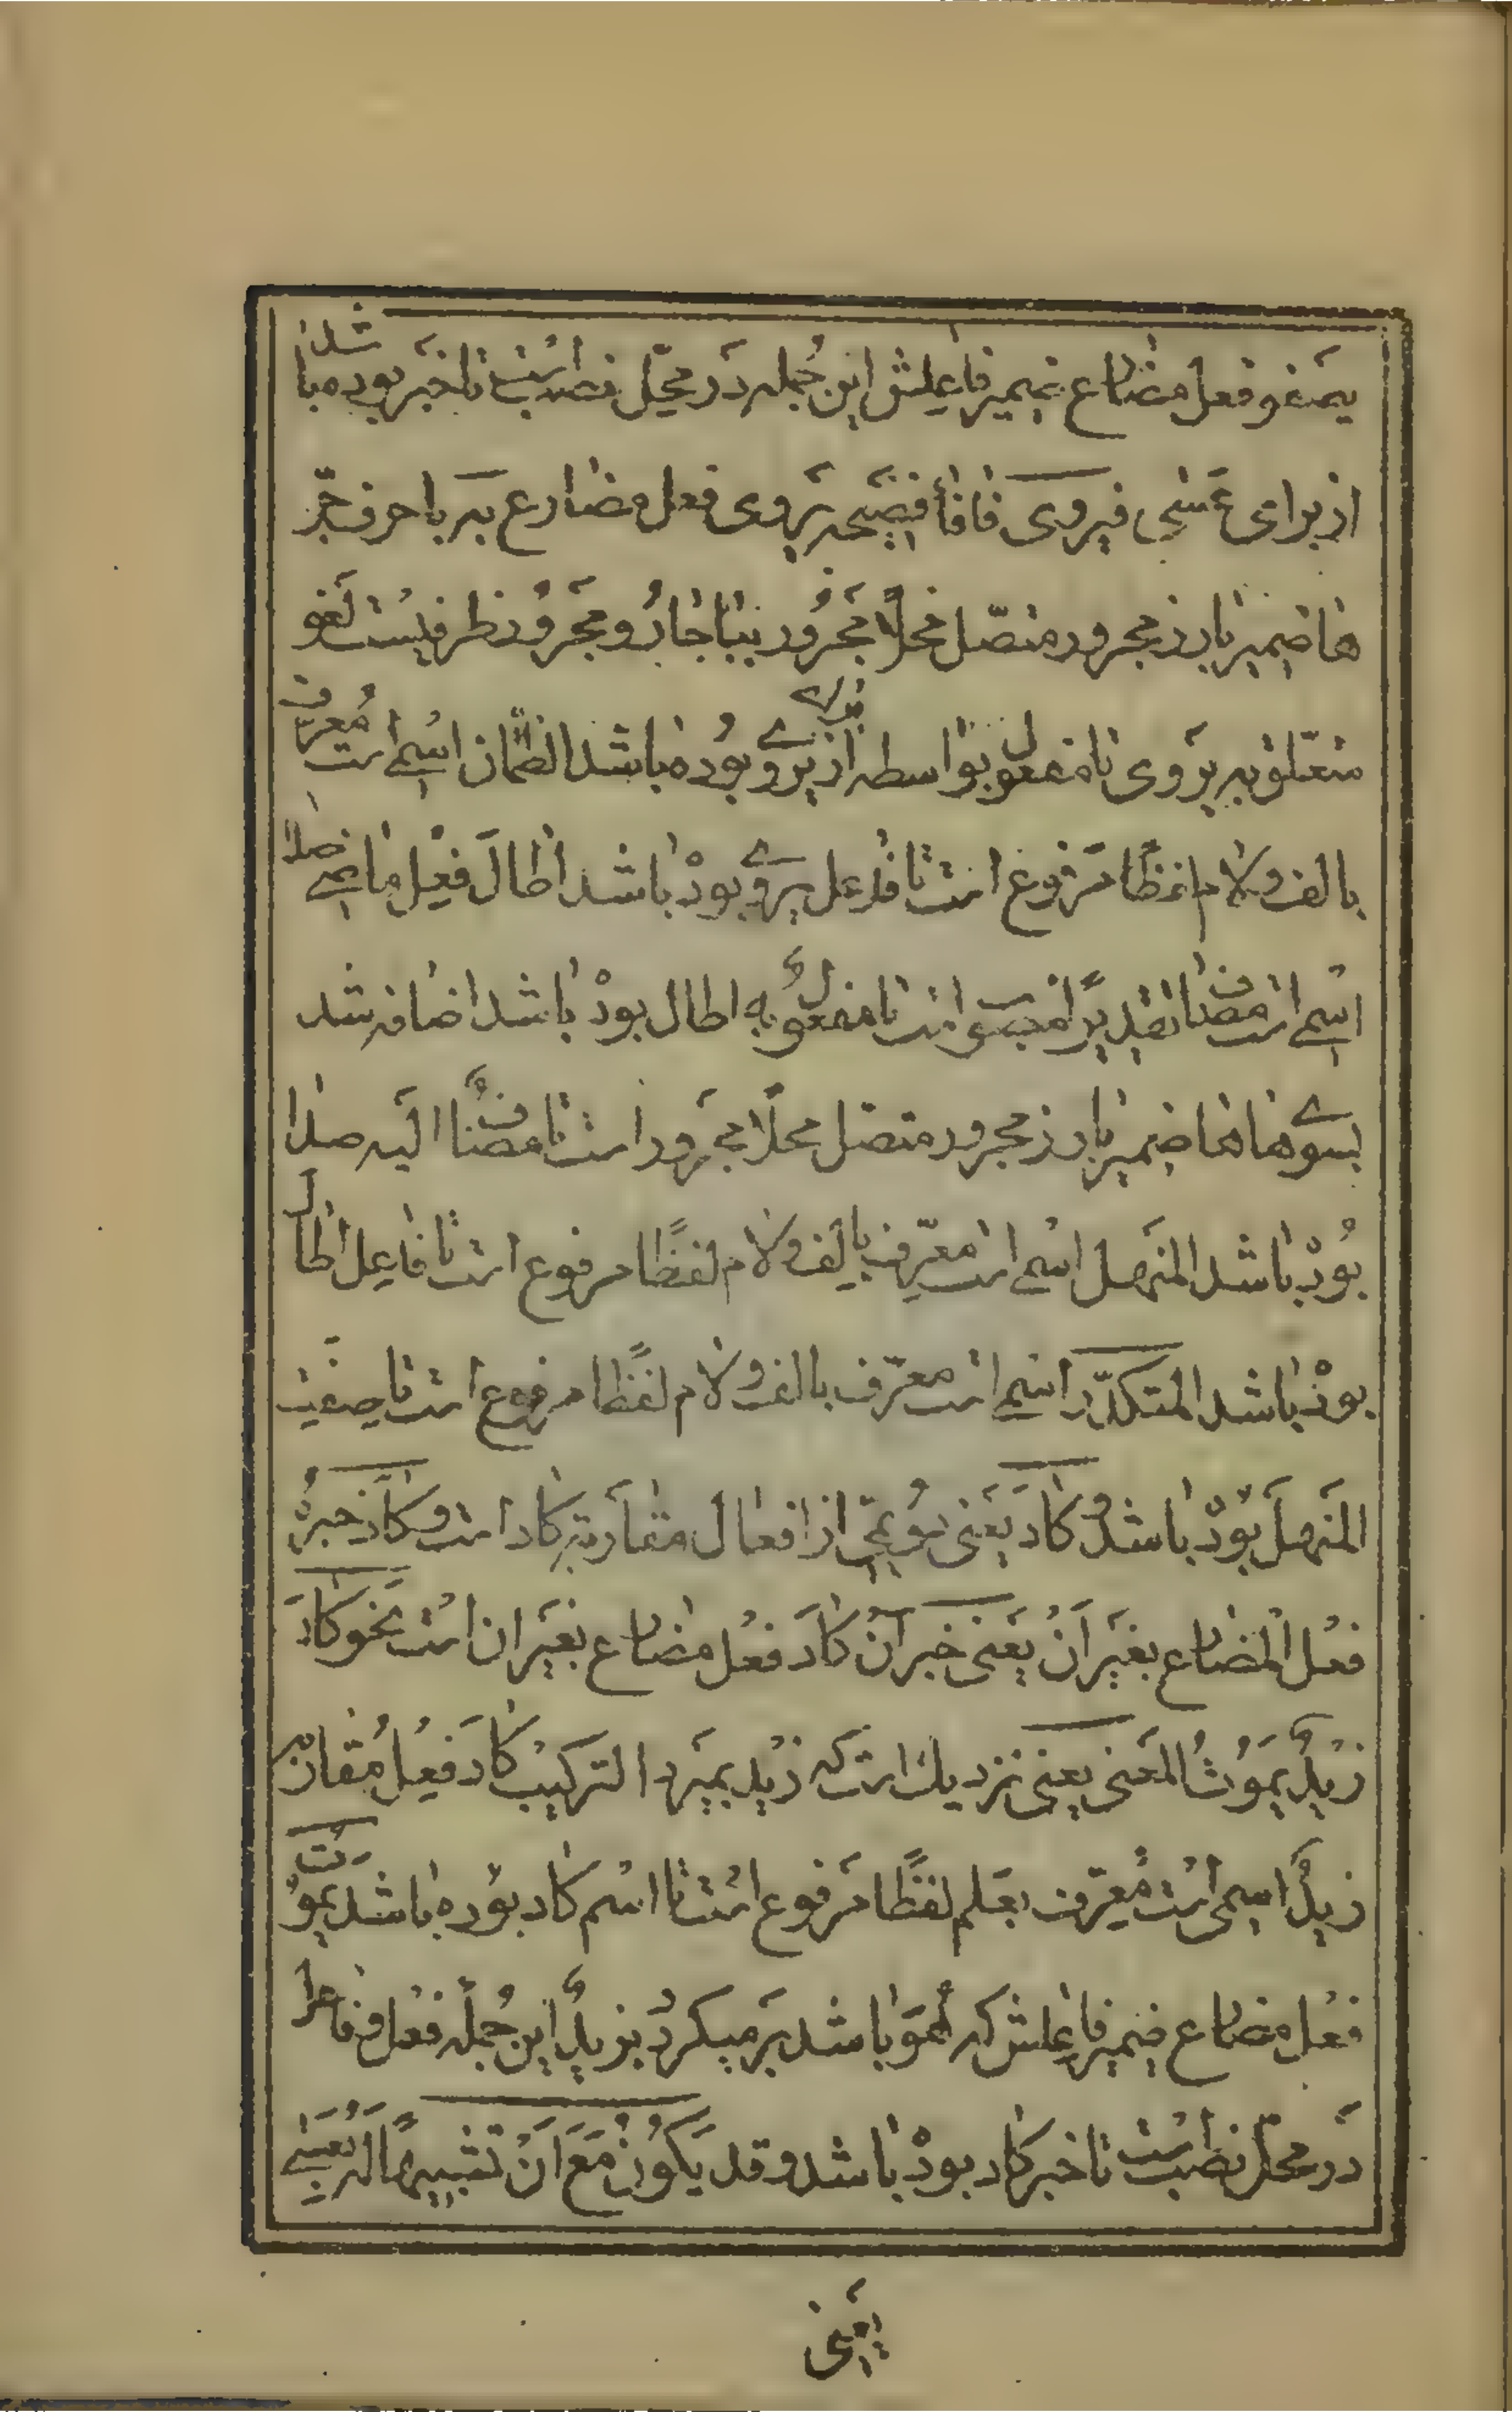 یصفو فعل مضارع ضمیر فاعلش این جمله در محل نصب است تا خبر بوده باشد
از برای عسی فیروی فا فاء فصیحه یروی فعل مضارع بر با حرف جر
ها ضمیر بارز مجرور متصل محلاً مجرور ببا جار و مجرور ظرفیست لغو
متعلق به یروی تا مفعول بواسطه از برای یروی بوده باشد الظمان اسمی است معرف
بالف و لام لفظًا مرفوع است تا فاعل یروی بود باشد اطال فعل ماضی صدا
اسمی است مضاف تقدیرًا منصوب است تا مفعول به اطال بود باشد اضافه شد
بسوی ها ها ضمیر بارز مجرور متصل محلًا مجرور است تا مضاف الیه صدا
بود باشد المنهل اسمی است معرف بالف و لام لفظًا مرفوع است تا فاعل اطال
بود باشد المتکدّر اسمی است معرّف بالف و لام لفظًا مرفوع است تا صفت
المنهل بود باشد و کاد یعنی نوعی از افعال مقاربه کاد است و کاد خبره
فعل المضارع بغیر ان یعنی خبر آن کاد فعل مضارع بغیر ان است نحو کاد
زید یموت المعنی یعنی نزدیك است که زید بمیرد الترکیب کاد فعل مقاربه
زید اسمی است معرّف بعلم لفظًا مرفوع است تا اسم کاد بوده باشد یموت
فعل مضارع ضمیر فاعلش که هو باشد برمیکردد بزید این جمله فعل و فاعل
در محل نصب است تا خبر کاد بود باشد و قد یکون مع ان تشبیهًا له بعسی
یعنی